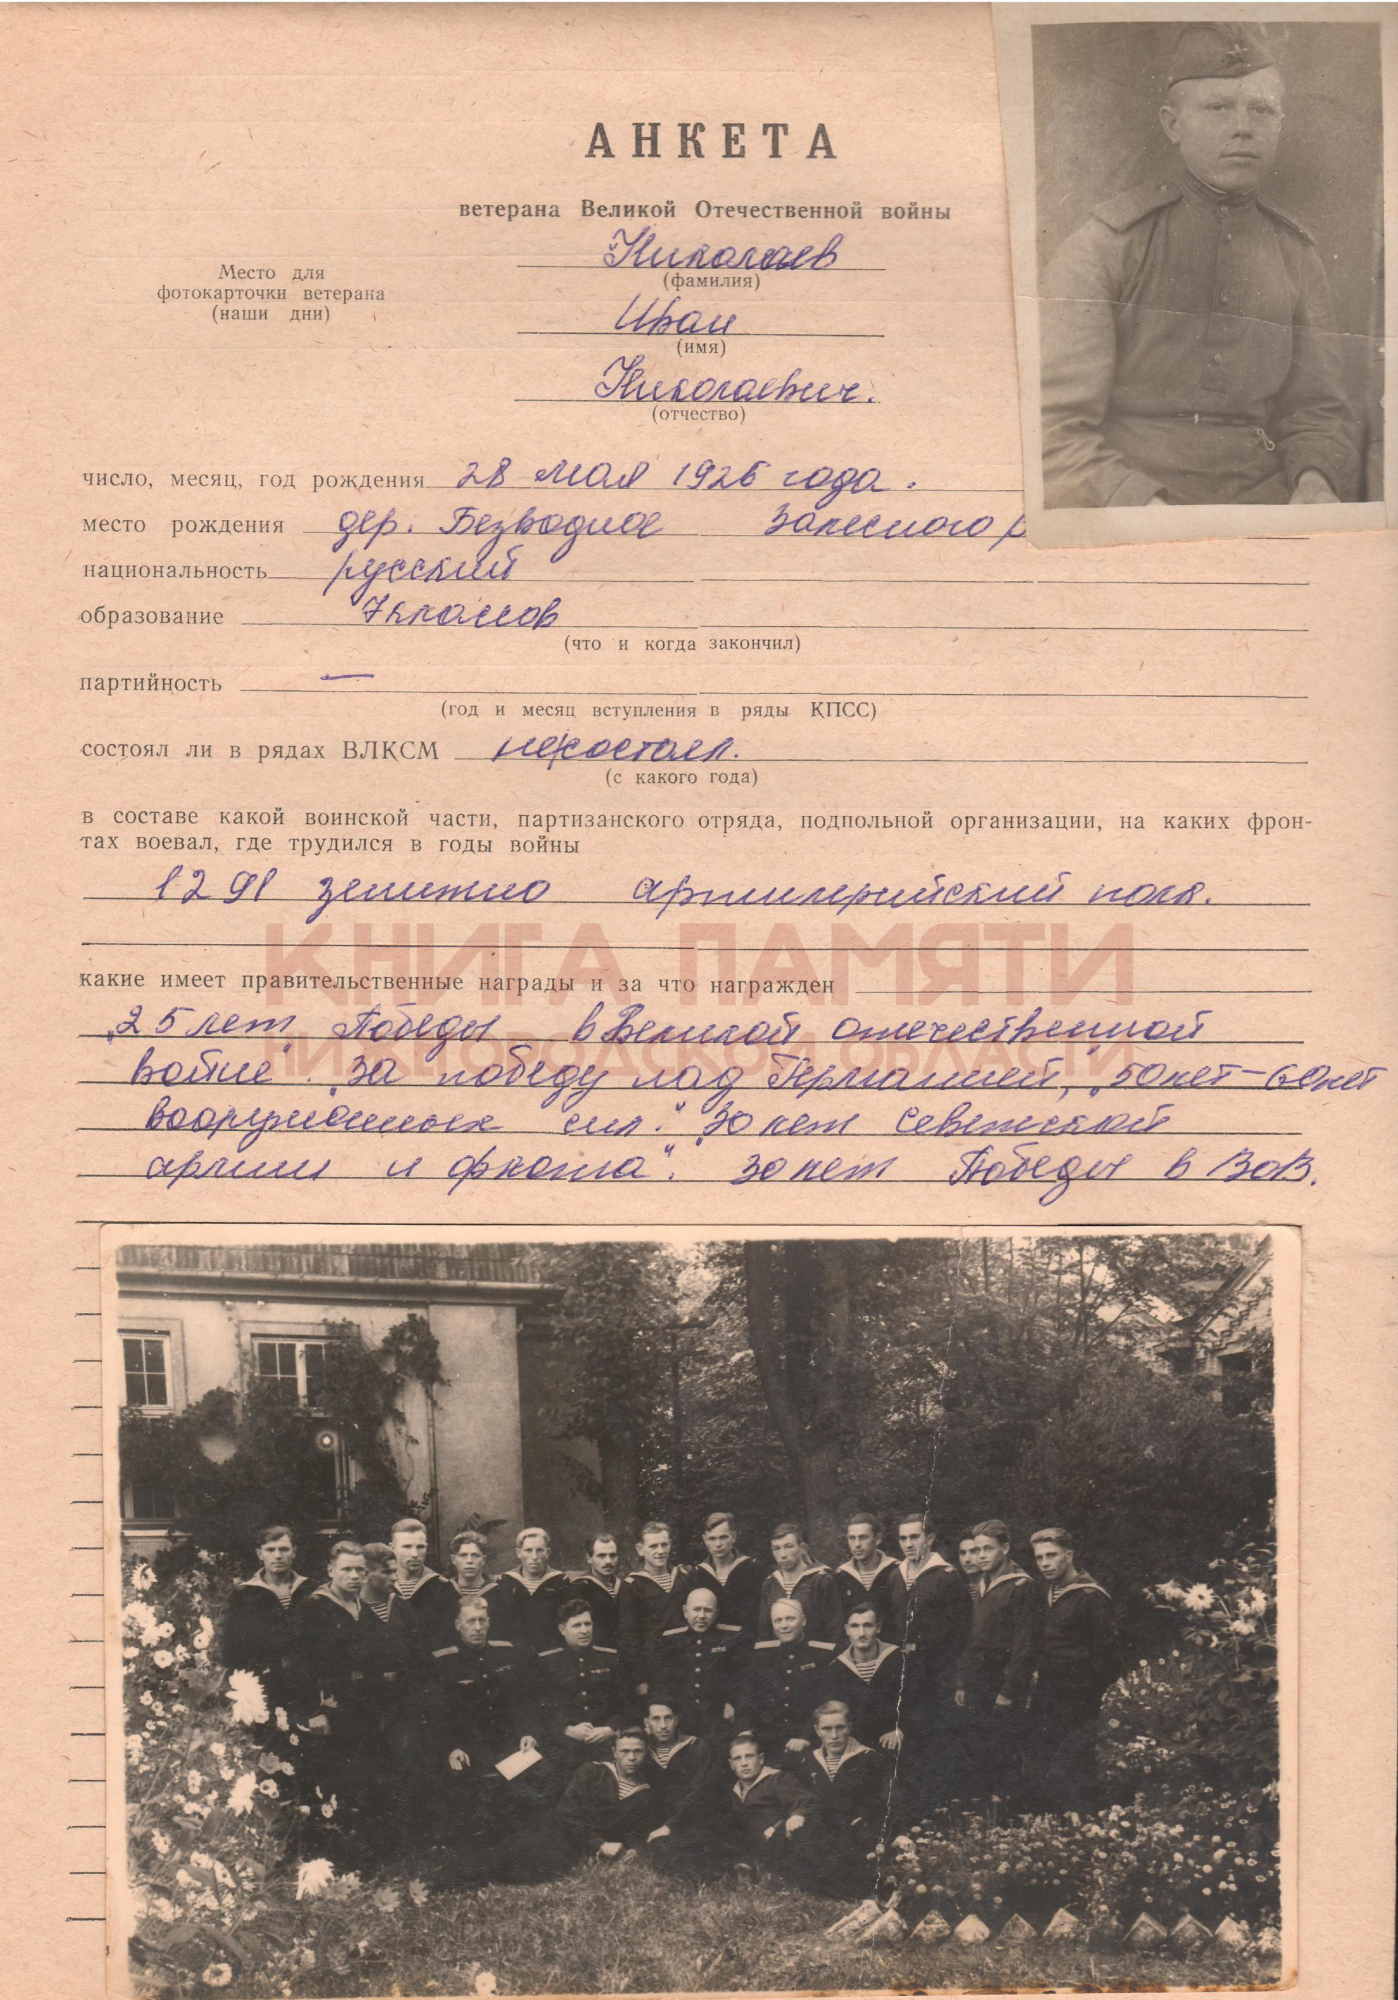 АНКЕТА
ветерана Великой Отечественной войны
Николаев
(фамилия)
Место для
фотокарточки ветерана
(наши дни)
Иван
(имя)
Николаевич.
(отчество)
число, месяц, год рождения 28 мая 1926 года.
место рождения дер. Безводное Залесного р
национальность русский
образование 7 классов
(что и когда закончил)
партийность —
(год и месяц вступления в ряды КПСС)
состоял ли в рядах ВЛКСМ не состоял.
(с какого года)
в составе какой воинской части, партизанского отряда, подпольной организации, на каких фрон-
тах воевал, где трудился в годы войны
1291 зенитно артилерийский полк.
КНИГА ПАМЯТИ
какие имеет правительственные награды и за что награжден
„25 лет Победы в Великой отечественной
НИЖЕГОРОДСКОЙ ОБЛАСТИ
войне". „За победу над Германией", „50 лет – 60 лет
вооруженных сил." „30 лет Советской
армии и флота". 30 лет Победы в ВОВ.